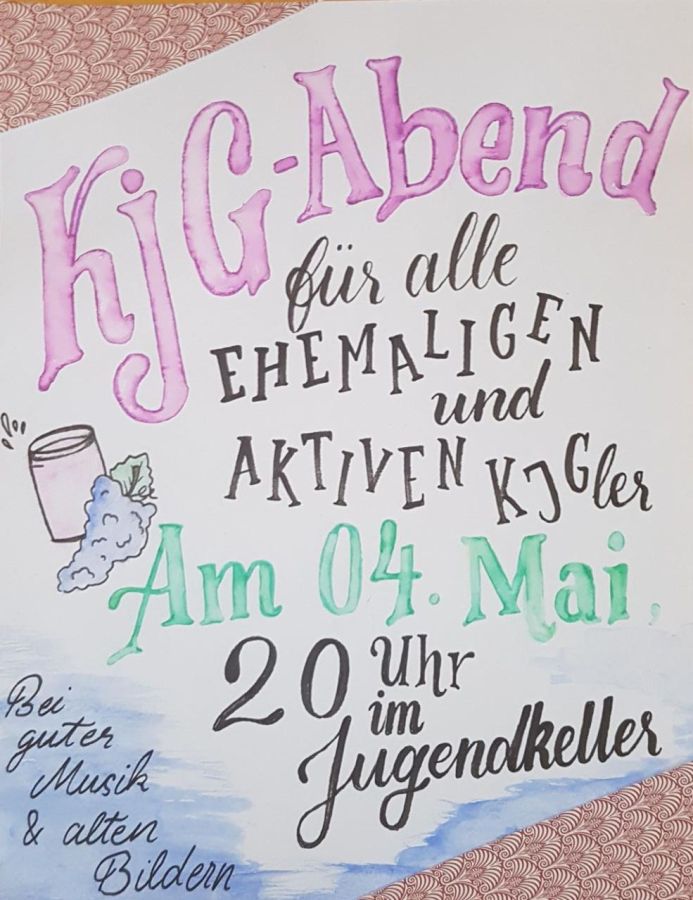 KjG-Abend
für alle
EHEMALIGEN
und
AKTIVEN KJGler
Am 04. Mai,
20 Uhr
im
Jugendkeller
Bei
guter
Musik
& alten
Bildern